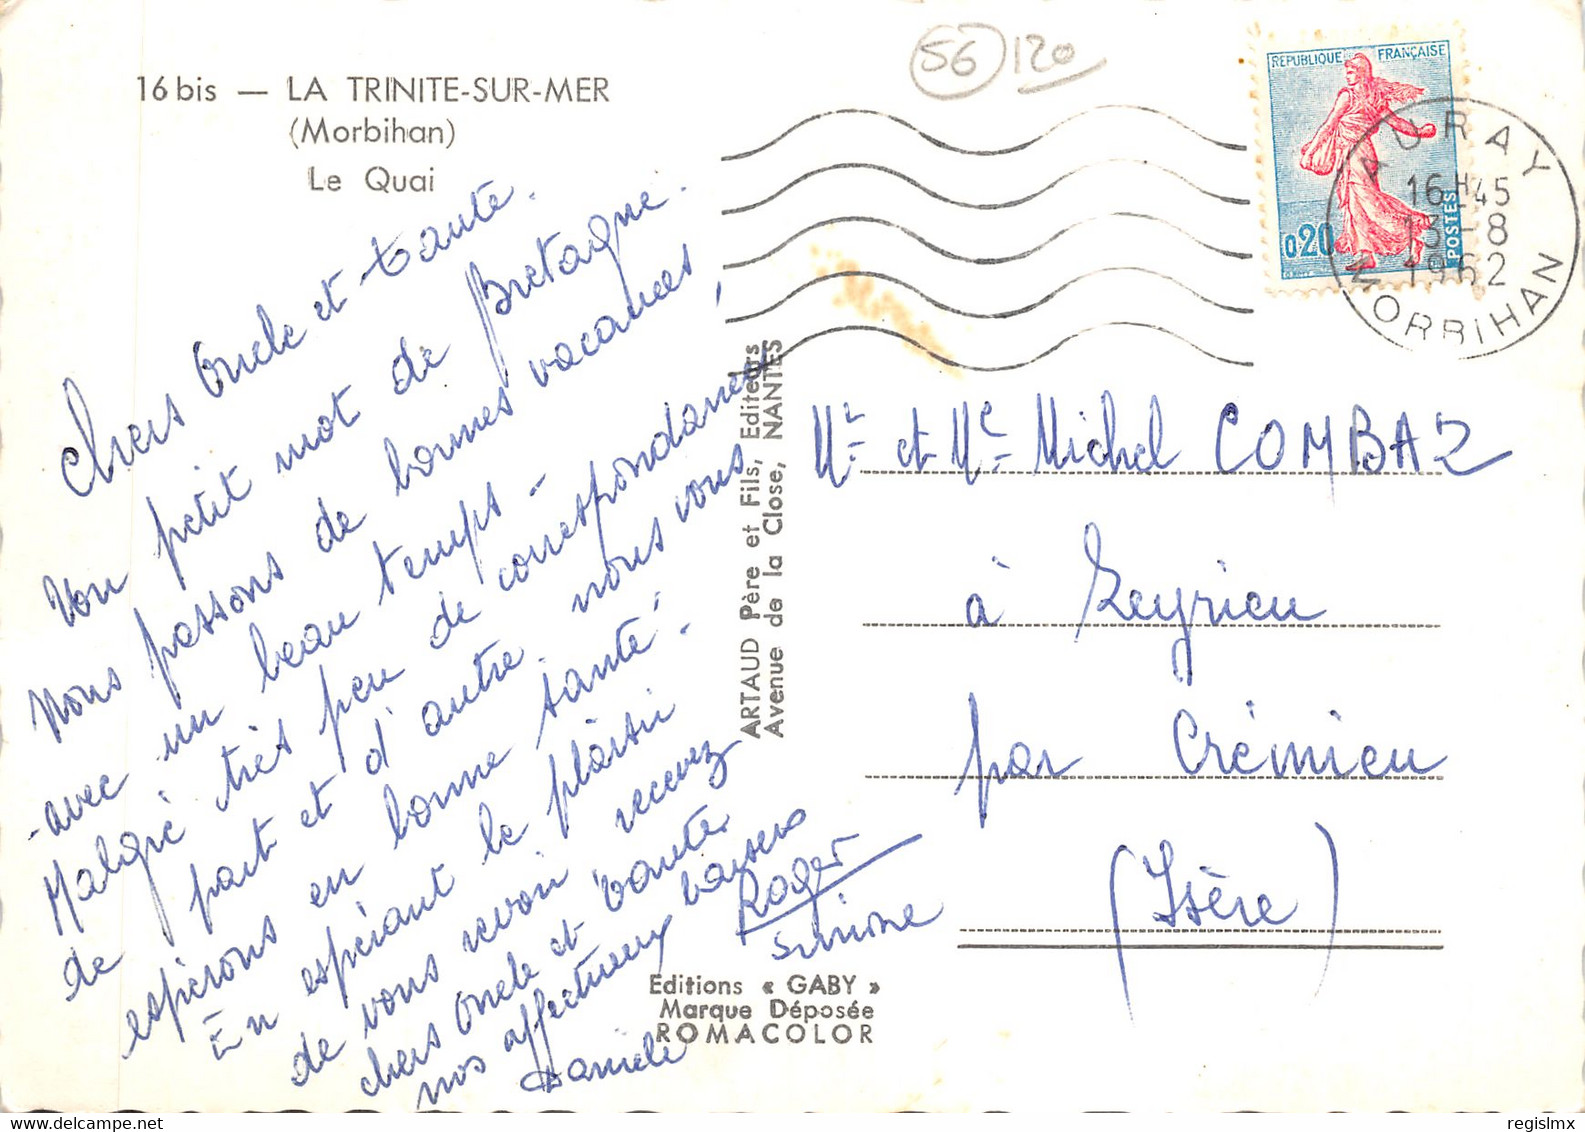 16 bis — LA TRINITE-SUR-MER
(Morbihan)
Le Quai
56 120
REPUBLIQUE FRANÇAISE
0,20
POSTES
AURAY
16H45
13-8
1962
MORBIHAN
Chers Oncle et tante.
Un petit mot de Bretagne.
Nous passons de bonnes vacances,
avec un beau temps -
Malgré très peu de correspondances
de part et d'autre, nous vous
espérons en bonne santé.
En espérant le plaisir
de vous revoir recevez
chers Oncle et tante
nos affectueux baisers
Roger
Simone
Daniele
ARTAUD Père et Fils, Editeurs
Avenue de la Close, NANTES
Mr et Me Michel COMBAZ
à Leyrieu
par Crémieu
(Isère)
Editions « GABY »
Marque Déposée
ROMACOLOR
www.delcampe.net
regislmx